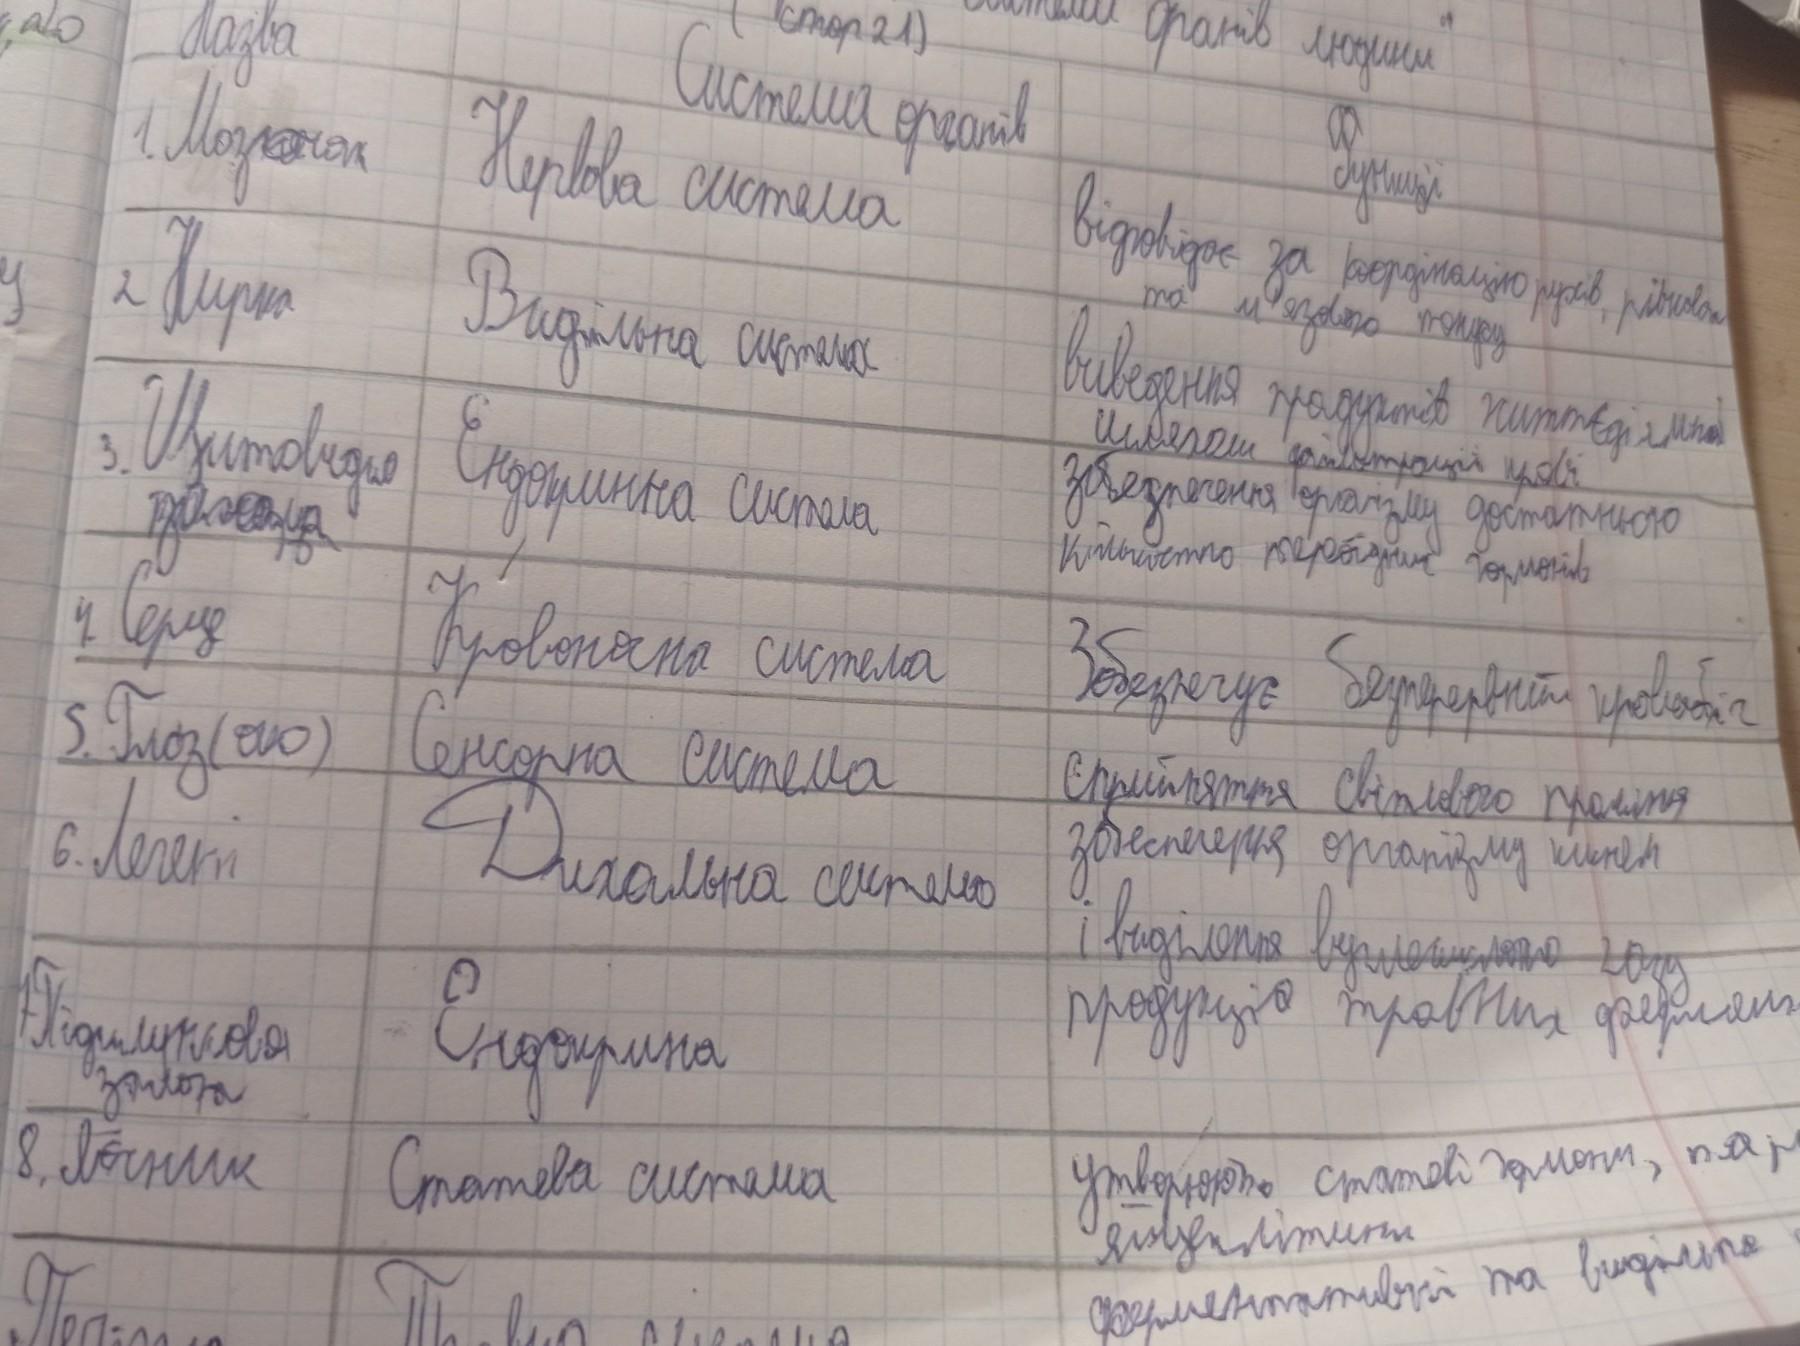 органів людини"
(стор 21)
Назва
Система органів
Функції
1. Мозочок
Нервова система
відповідає за координацію рухів, рівноваги
та м'язового тонусу
2 Нирка
Видільна система
виведення продуктів життєдіяльності
шляхом фільтрації крові
3. Щитовидна
Ендокринна система
збезпечення організму достатньою
кількостю необхідних гормонів
4. Серце
Кровоносна система
Забезпечує безперервний кровообіг
5. Глаз (око)
Сенсорна система
сприйняття світлового проміння
6. Легені
Дихальна система
збеспечення організму киснем
і виділення вуглекислого газу
7. Підшлункова
залоза
Ендокрина
продукція травних
8. Яєчник
Статева система
утворюють статеві гормони,
яйцеклітини
Печінка
Травна система
ферментативній та видільна